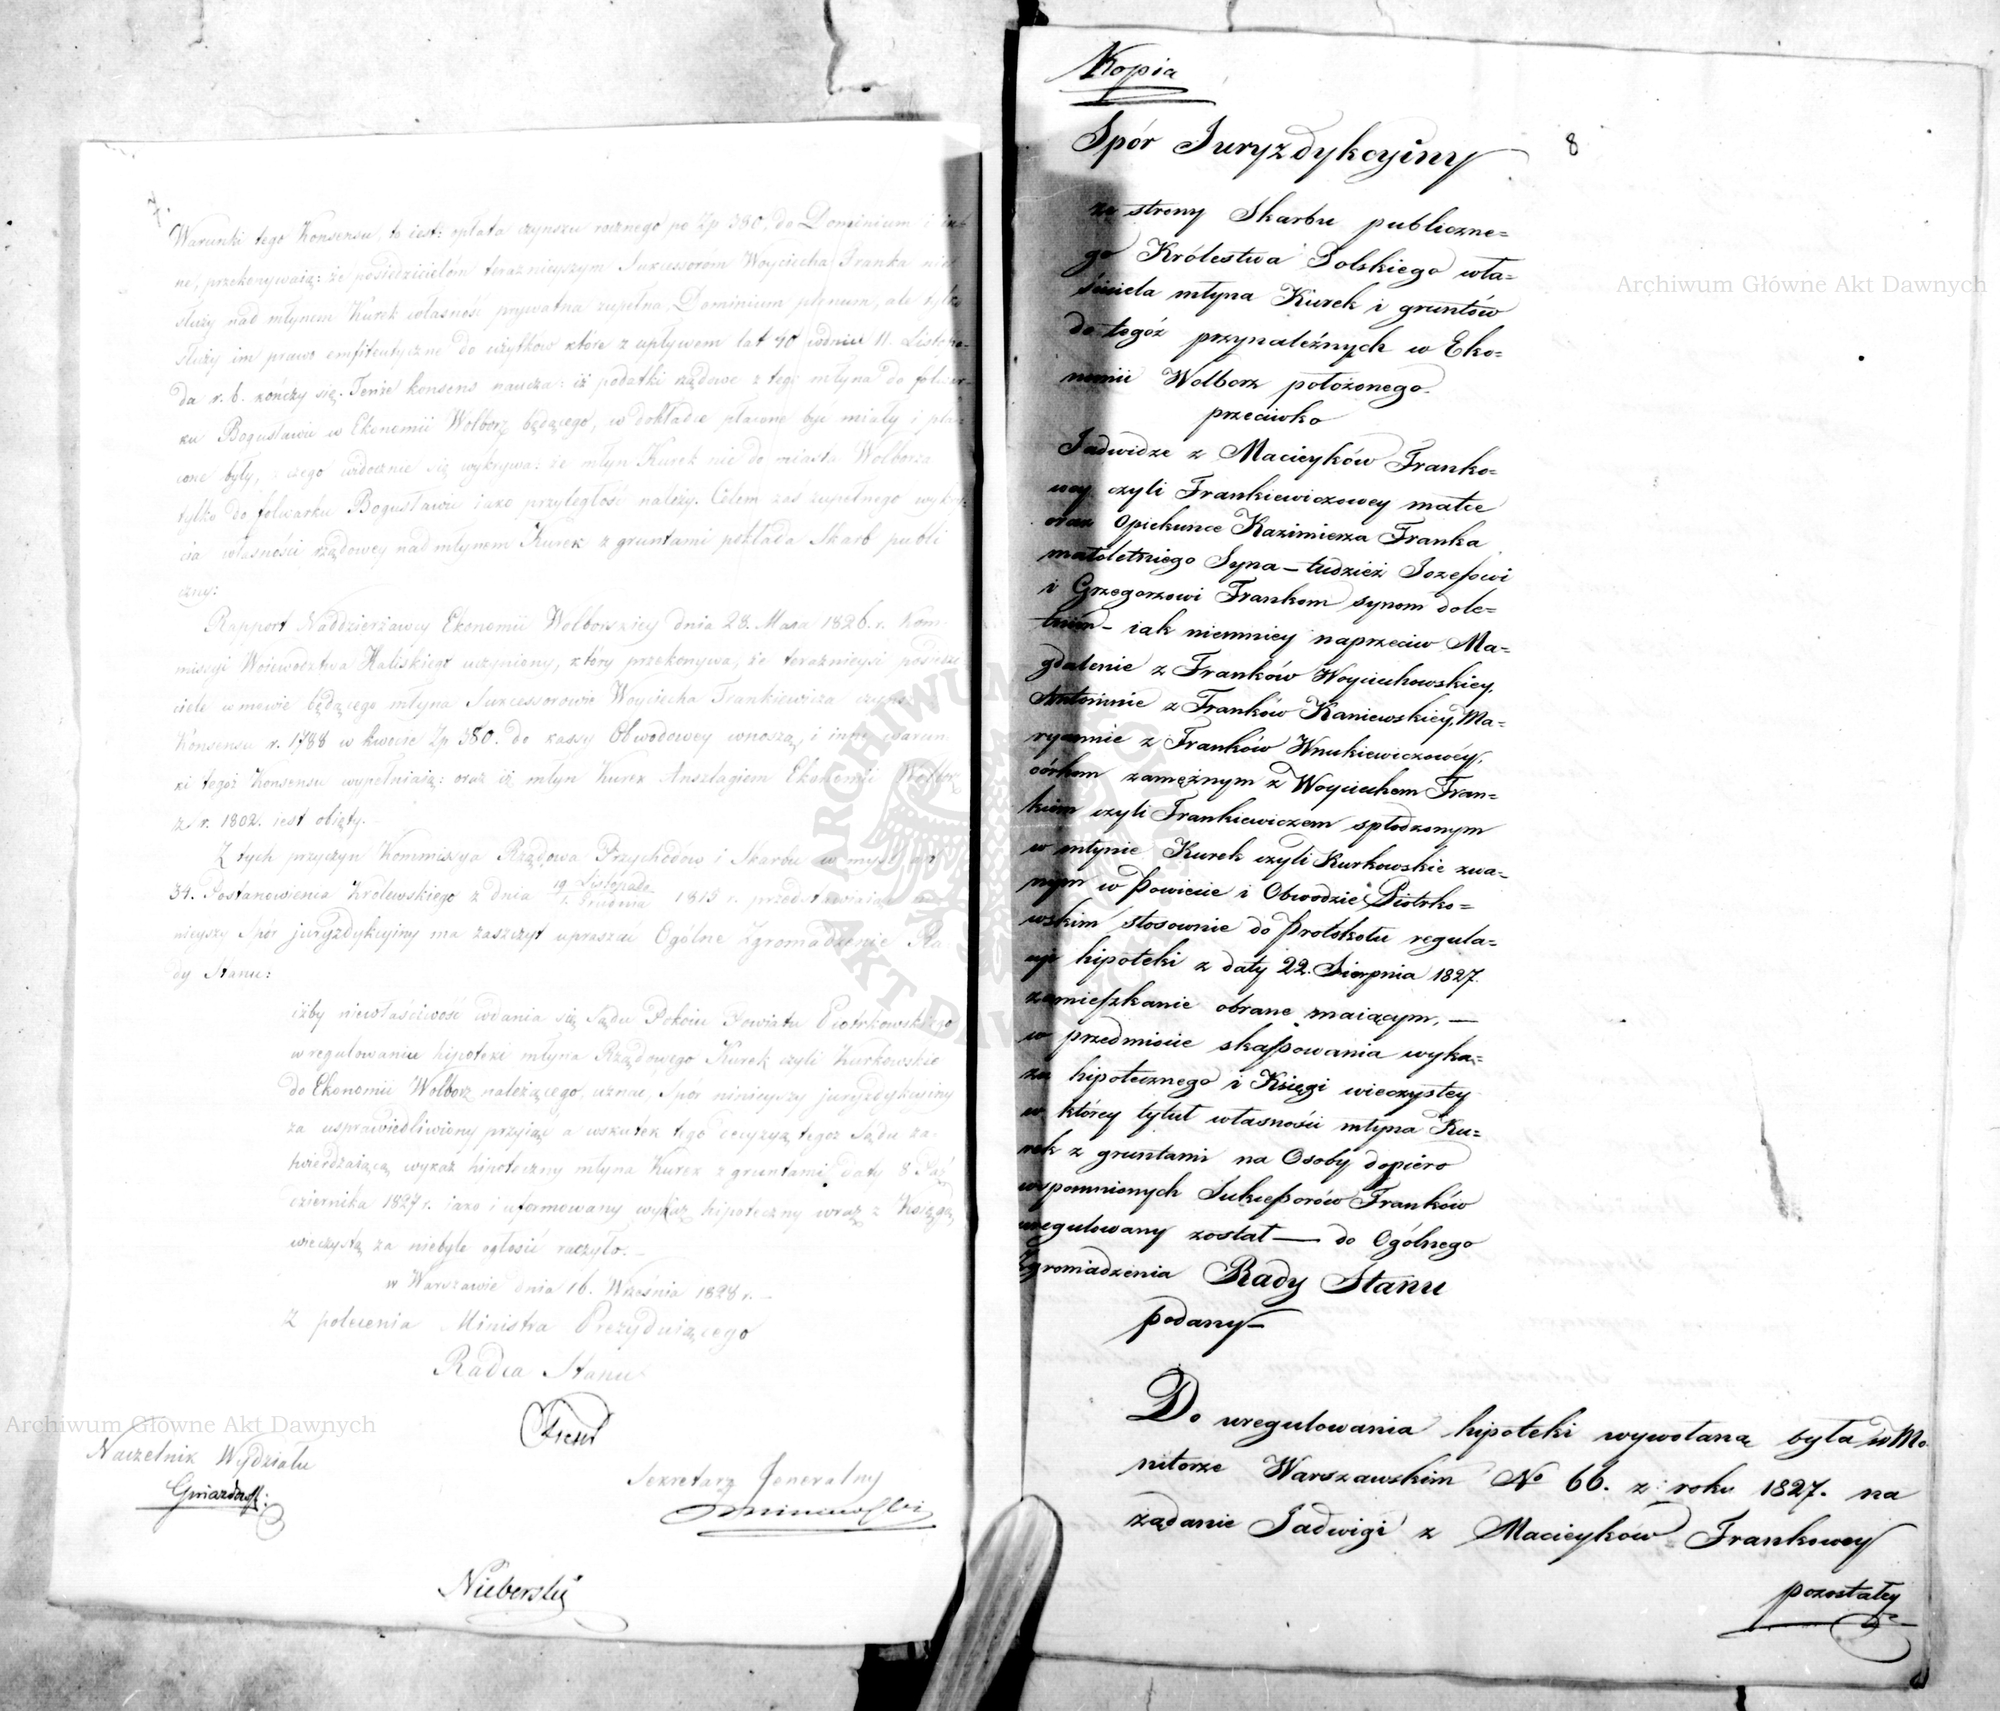 Warunki tego Konsensu, to iest: opłata czynszu rocznego po Zp 380, do Dominium i in=
ne, przekonywaią: że posiedzicielom teraźnieyszym Sukcessorom Woyciecha Franka nie
służy nad młynem Kurek własność prywatna zupełna, Dominium plenum, ale tylko
służy im prawo emfiteutyczne do użytków które z upływem lat 40 w dniu 11. Listopa=
da r. b. kończy się. Tenże konsens naucza: iż podatki rządowe z tego młyna do folwar=
ku Bogusławie w Ekonomii Wolborz będącego, w dokładce płacone być miały i pła=
cone były, z czego widocznie się wykrywa: że młyn Kurek nie do miasta Wolborza
tylko do folwarku Bogusławie iako przyległość należy. Celem zaś zupełnego wykry=
cia własności rządowey nad młynem Kurek z gruntami pokłada Skarb publi
czny:
Rapport Naddzierżawcy Ekonomii Wolborskiey dnia 28. Maia 1826. r. Kom=
missyi Woiewództwa Kaliskiego uczyniony, który przekonywa, że teraźnieysi posiedzi
ciele w mowie będącego młyna Sukcessorowie Woyciecha Frankiewicza czynsz
Konsensu r. 1788 w kwocie Zp 380. do kassy Obwodowey wnoszą, i inne warun
ki tegoż Konsensu wypełniaią: oraz iż młyn Kurek Anszlagiem Ekonomii Wolborz
z r. 1802. iest obięty.—
Z tych przyczyn Kommissya Rządowa Przychodów i Skarbu w myśl art
34. Postanowienia Królewskiego z dnia 19 Listopada / 1. Grudnia 1815 r. przedstawiaiąc ni
nieyszy Spór juryzdykcyiny ma zaszczyt upraszać Ogólne Zgromadzenie Ra
dy Stanu:
iżby niewłaściwość wdania się Sądu Pokoiu Powiatu Piotrkowskiego
w regulowaniu hipoteki młyna Rządowego Kurek czyli Kurkowskie
do Ekonomii Wolborz należącego, uznać, Spór ninieyszy juryzdykcyiny
za usprawiedliwiony przyiąć a wskutek tego decyzyą tegoż Sądu za=
twierdzaiącą wykaz hipoteczny młyna Kurek z gruntami, daty 8 Paź
dziernika 1827 r. iako i uformowany wykaz hipoteczny wraz z Księgą
wieczystą za niebyłe ogłosić raczyło.—
w Warszawie dnia 16. Września 1828 r.—
Z polecenia Ministra Prezyduiącego
Radca Stanu
Naczelnik Wydziału
Sekretarz Jeneralny
Kopia
8
Spór Juryzdykcyiny
ze strony Skarbu publiczne=
go Królestwa Polskiego wła=
ściciela młyna Kurek i gruntów
do tegóż przynależnych w Eko=
nomii Wolborz położonego
przeciwko
Jadwidze z Macieyków Franko=
wey czyli Frankiewiczowey matce
oraz Opiekunce Kazimierza Franka
małoletniego Syna — tudzież Jozefowi
i Grzegorzowi Frankom synom dole=
tnim — iak niemniey naprzeciw Ma=
gdalenie z Franków Woyciechowskiey,
Antoninie z Franków Kaniewskiey, Ma=
ryannie z Franków Wnukiewiczowéy,
córkom zamężnym z Woyciechem Fran=
kiem czyli Frankiewiczem spłodzonym
w młynie Kurek czyli Kurkowskie zwa=
nym w Powiecie i Obwodzie Piotrko=
wskim stosownie do Protokołu regula=
cyi hipoteki z daty 22. Sierpnia 1827
zamieszkanie obrane maiącym, —
w przedmiocie skassowania wyka=
zu hipotecznego i Księgi wieczystey
w którey tytuł własności młyna Ku=
rek z gruntami na Osoby dopiéro
wspomnionych Sukcessorów Franków
uregulowany został — do Ogólnego
Zgromadzenia Rady Stanu
podany—
Do uregulowania hipoteki wywołaną była w Mo
nitorze Warszawskim No 66. z roku 1827. na
żądanie Jadwigi z Macieyków Frankowey
pozostałey
Archiwum Główne Akt Dawnych
Archiwum Główne Akt Dawnych